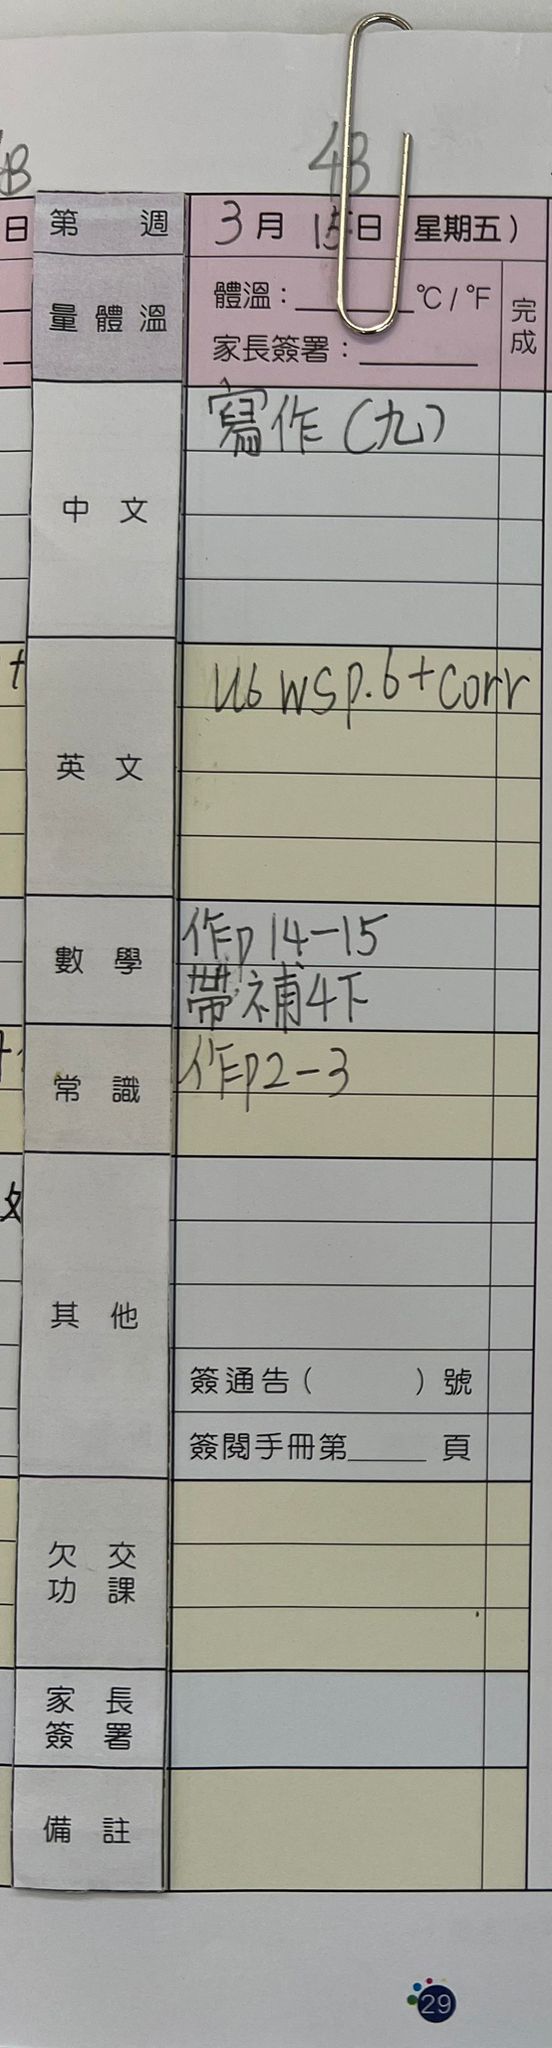 4B
4B
日
第 週
3月15日(星期五)
量體溫
體溫：______°C/°F
家長簽署：______
完成
中文
寫作(九)
英文
U6 WS p.6 + corr
數學
作p14-15
帶補4下
常識
作p2-3
其他
簽通告( )號
簽閱手冊第_____頁
欠交
功課
家長
簽署
備註
29